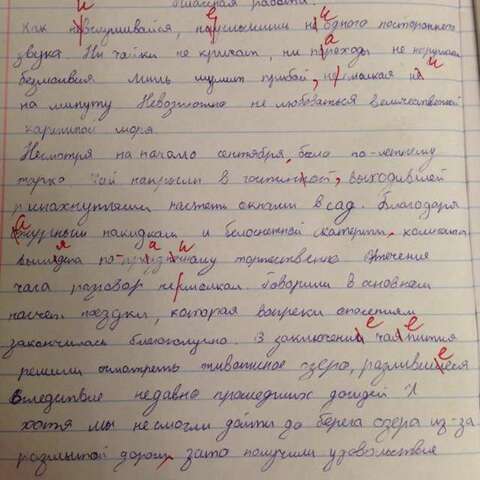 Домашняя работа.
Как не вслушивайся, не услышишь ни одного постороннего
звука. Ни чайки не кричат, ни пароходы не нарушают
безмолвия лишь шумит прибой, не смолкая ни
на минуту Невозможно не любоваться величественной
картиной моря.
Несмотря на начало сентября, было по-летнему
жарко. Чай накрыли в гостинной, выходившей
распахнутыми настеж окнами в сад. Благодаря
ажурным накидкам и белоснежной скатерти, комната
выглядела по-праздничному торжественно Втечение
часа разговор не смолкал. Говорили в основном
насчет поездки, которая вопреки опасениям
закончилась благополучно. В заключение чаепития
решили осмотреть живописное озеро, разлившееся
вследствие недавно прошедших дождей И
хотя мы не смогли дойти до берега озера из-за
размытой дороги, зато получили удовольствие